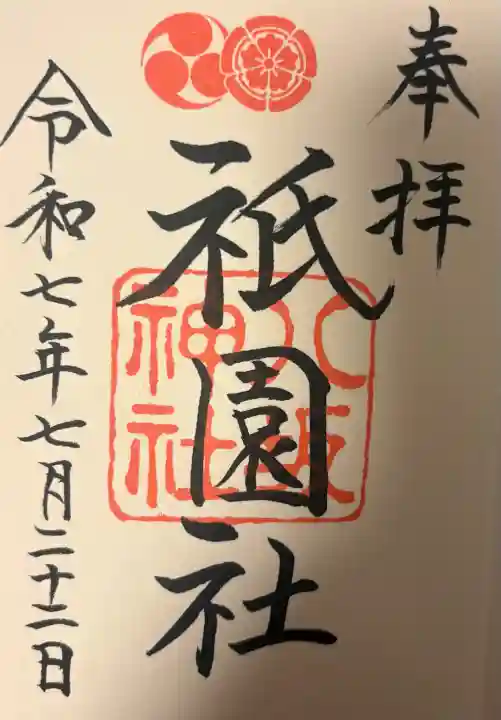 奉拝
祇園社
八坂神社
令和七年七月二十二日